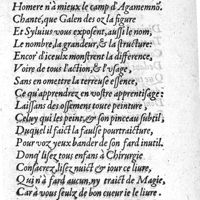 Homere n'à mieux le camp d'Agamemnõ.
Chanté, que Galen des oz la figure
Et Syluius vous exposent, aussi le nom,
Le nombre, la grandeur, & la structure:
Encor d'iceulx monstrent la différence,
Voire de tous l'action, & l'vsage,
Sans en omettre la terreuse essence,
Ce qu'apprendrez en vostre apprentissage:
Laissans des ossemens toute peinture,
Celuy qui les peinct, & son pinceau subtil,
Duquel il faict la faulse pourtraicture,
Pour voz yeux bander de son fard inutil.
Donq' lisez tous enfans à Chirurgie
Consacrez, lisez nuict & iour ce liure,
Qui n'à fard aucun, ny traict de Magie,
Car à vous seulz de bon cueur ie le liure.